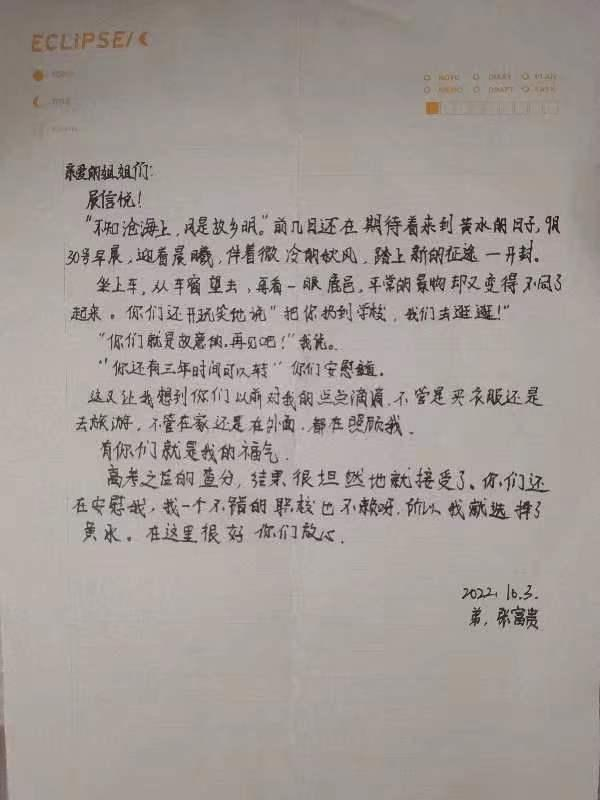 ECLIPSE/
TITLE
NOTE DIARY PLAN
MEMO DRAFT TASK
亲爱的姐姐们:
展信悦!
"不知沧海上,风是故乡明。"前几日还在期待着来到黄水的日子,9月
30号早晨,迎着晨曦,伴着微冷的秋风,踏上新的征途—开封。
坐上车,从车窗望去,再看一眼鹿邑,平常的景物却又变得不同了
起来。你们还开玩笑地说"把你扔到学校,我们去逛逛!"
"你们就是故意的,再见吧!"我说。
"你还有三年时间可以转"你们安慰道。
这又让我想到你们以前对我的点点滴滴,不管是买衣服还是
去旅游,不管在家还是在外面,都在照顾我。
有你们就是我的福气.
高考之后的查分,结果很坦然地就接受了。你们还
在安慰我,我一个不错的职校也不赖呀,所以我就选择了
黄水。在这里很好你们放心.
2022.10.3.
弟,张富贵